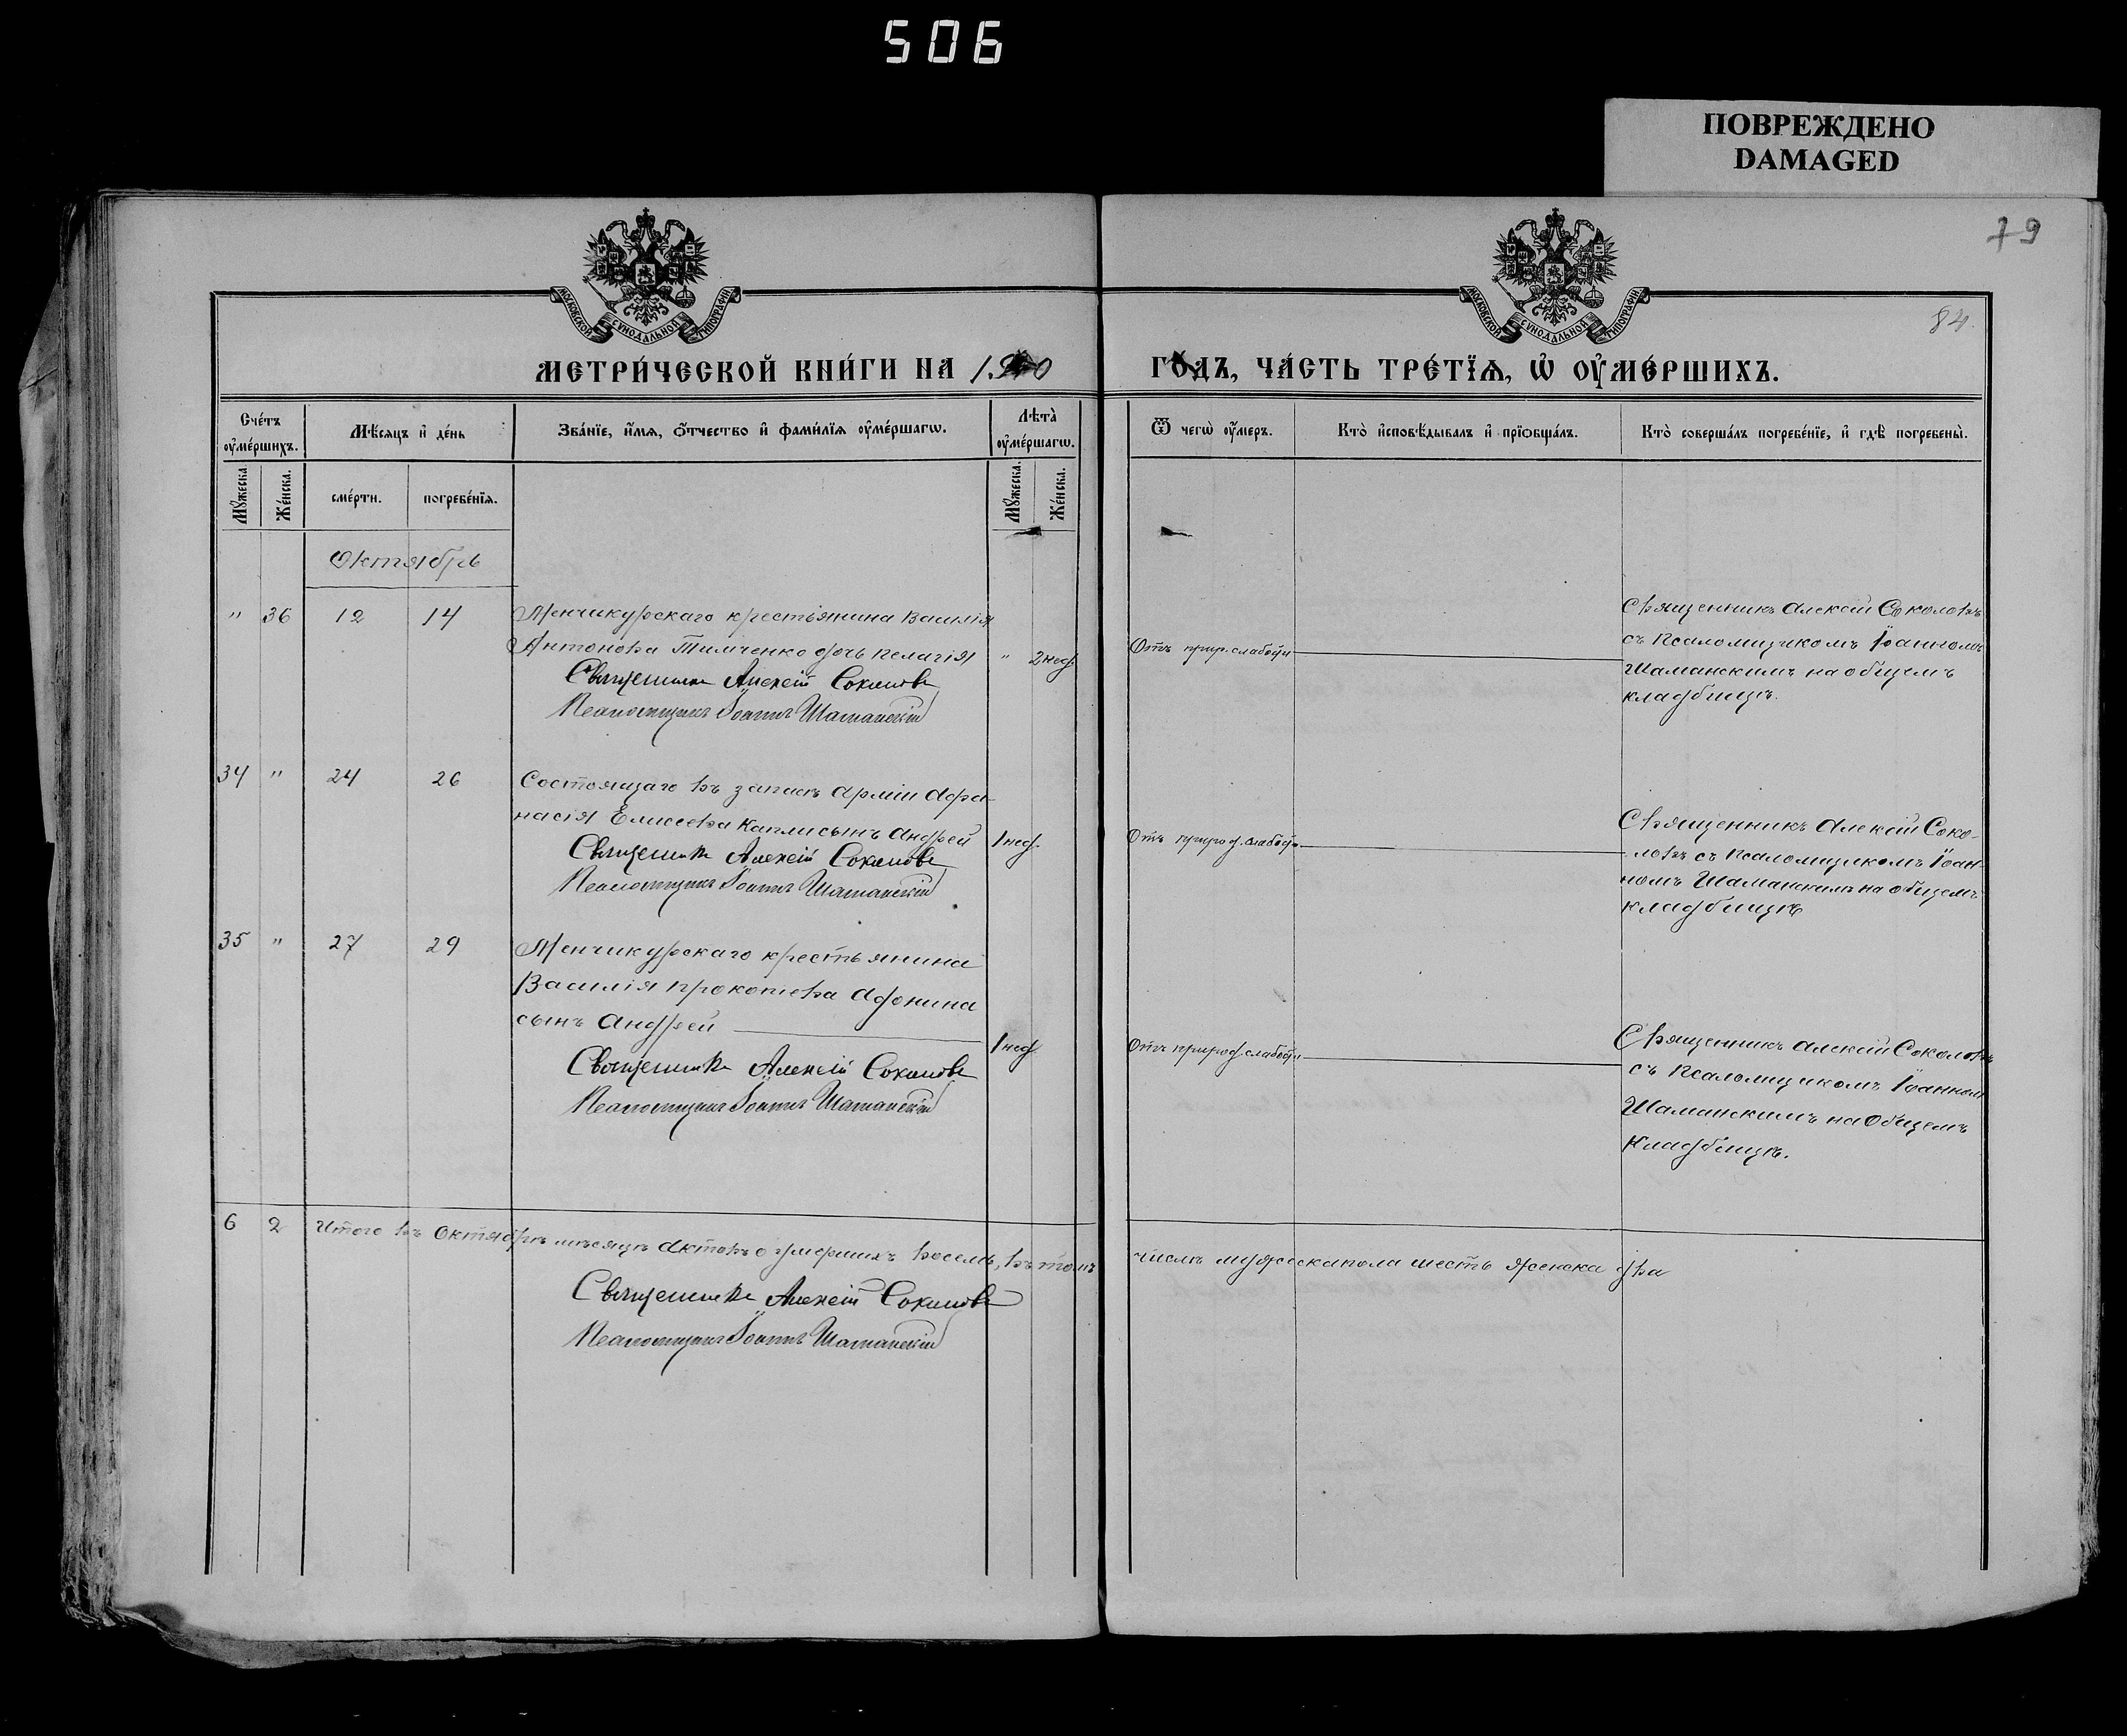 506
ПОВРЕЖДЕНО
DAMAGED
79
84
МОСКОВСКОЙ СУНОДАЛЬНОЙ ТИПОГРАФІИ
МОСКОВСКОЙ СУНОДАЛЬНОЙ ТИПОГРАФІИ
МЕТРИ́ЧЕСКОЙ КНИ́ГИ НА 1910 ГО́ДЪ, ЧА́СТЬ ТРЕ́ТЇѦ, Ѡ҆ ОУ҆МЕ́РШИХЪ.
Сче́тъ оу҆ме́ршихъ.
Мѣ́сѧцъ и҆ де́нь
Зва́нїе, и҆́мѧ, ѻ҆́тчество и҆ фами́лїѧ оу҆ме́ршагѡ.
Лѣта̀ оу҆ме́ршагѡ.
Ѿ чегѡ̀ оу҆́меръ.
Кто̀ и҆сповѣ́дывалъ и҆ прїѻбща́лъ.
Кто̀ соверша́лъ погребе́нїе, и҆ гдѣ̀ погребены̀.
Мꙋ́жеска.
Же́нска.
сме́рти.
погребе́нїѧ.
Мꙋ́жеска.
Же́нска.
Октябрь
" 36 12 14 Менчикурскаго крестьянина Василія
Антонова Тимченко дочь Пелагія " 2 нед.
Священникъ Алексій Соколовъ
Псаломщикъ Іоаннъ Шаманскій
Отъ прир. слабости
Священникъ Алексій Соколовъ
съ Псаломщикомъ Іоанномъ
Шаманскимъ на общемъ
кладбищѣ.
34 " 24 26 Состоящаго въ запасѣ арміи Афа-
насія Елисеева Капли сынъ Андрей 1 нед.
Священникъ Алексій Соколовъ
Псаломщикъ Іоаннъ Шаманскій
Отъ природ. слабости
Священникъ Алексій Соко-
ловъ съ Псаломщикомъ Іоан-
номъ Шаманскимъ на общемъ
кладбищѣ
35 " 27 29 Менчикурскаго крестьянина
Василія Прокопьева Афонина
сынъ Андрей 1 нед.
Священникъ Алексій Соколовъ
Псаломщикъ Іоаннъ Шаманскій
Отъ природ. слабости
Священникъ Алексій Соколовъ
съ Псаломщикомъ Іоанном
Шаманскимъ на Общемъ
Кладбищѣ.
6 2 Итого въ Октябрѣ мѣсяцѣ актовъ о умершихъ восемь, въ томъ числѣ мужеска пола шесть женска два
Священникъ Алексій Соколовъ
Псаломщикъ Іоаннъ Шаманскій